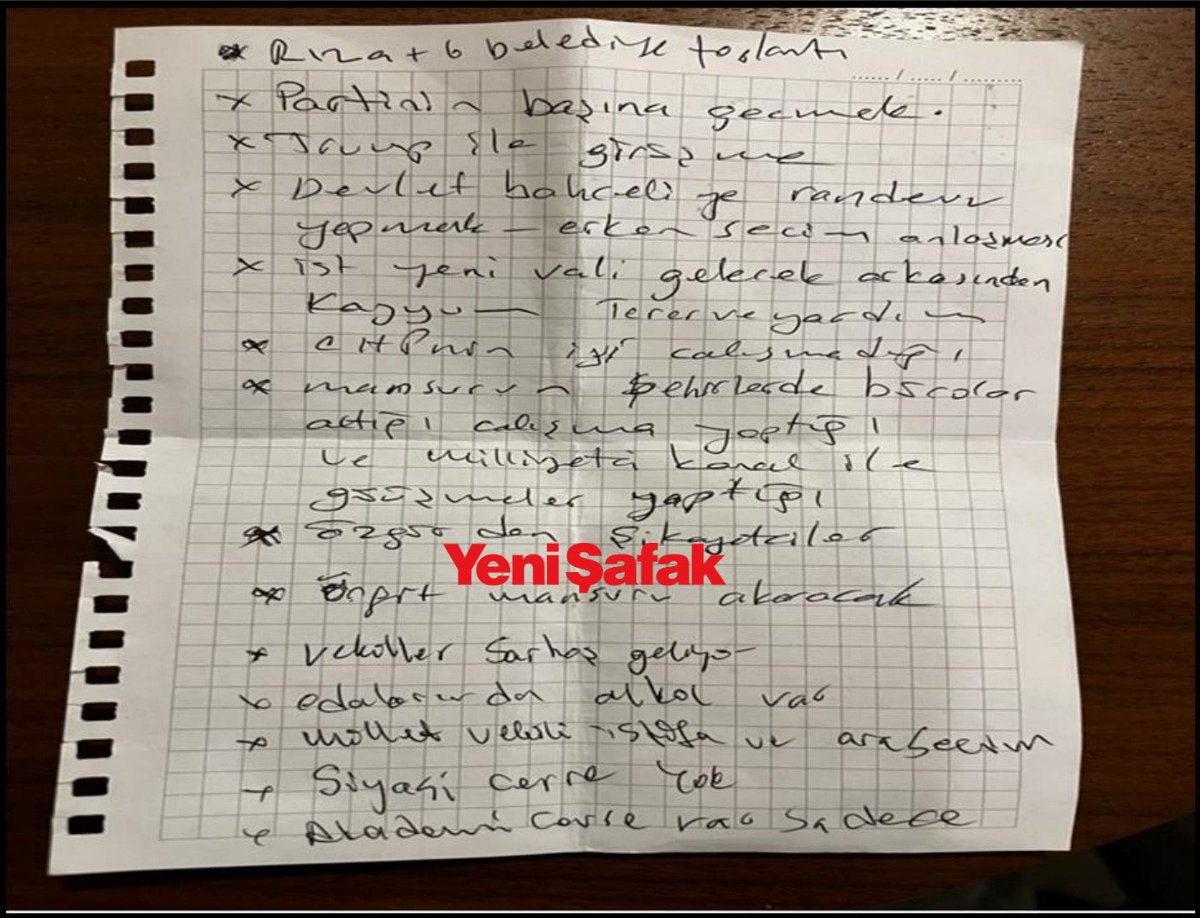 * Rıza + 6 belediye toplantı
...... / ..... / .........
x Partinin başına geçmek.
x Trump ile görüşme
x Devlet bahceliye randevu
yapmak – erken secim anlaşması
x ist yeni vali gelecek arkasından
Kayyum Terere yardım
x CHPnin iyi calışmadığı
x mansurun şehirlerde bürolar
actiği calışma yaptığı
ve milliyetci kanal ile
görüşmeler yaptığı
x özgür den şikayetciler
YeniŞafak
x mansuru
x vekiller Sarhoş geliyor
x odalarında alkol var
x millet vekili istifa ve araseçim
x Siyasi cevre Yok
x Akademi cevre var Sadece